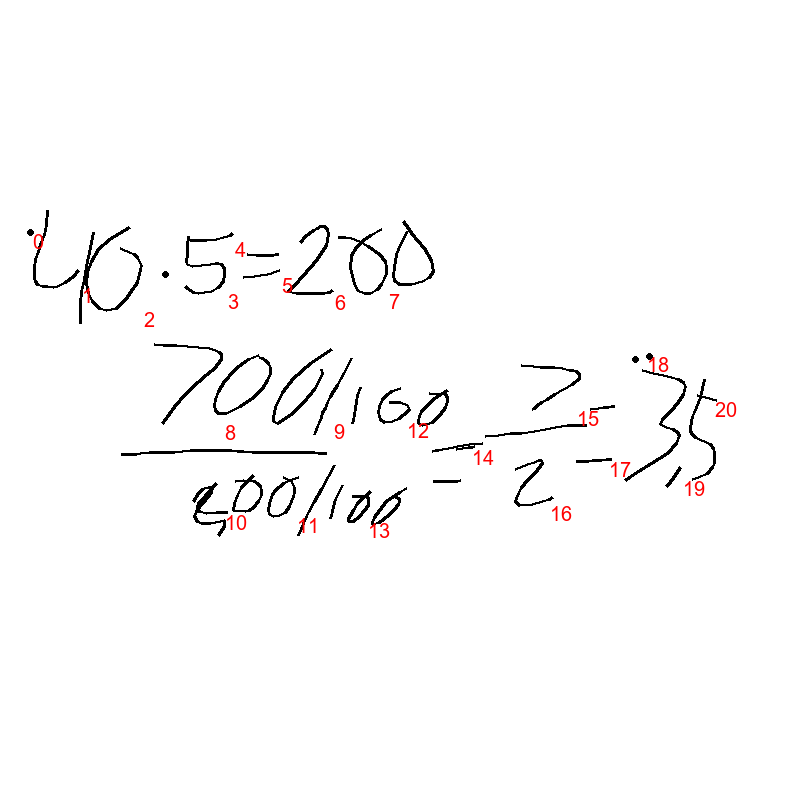 40 · 5 = 200
700/100 = 7 = 3,5
200/100 2
0 1 2 3 4 5 6 7 8 9 10 11 12 13 14 15 16 17 18 19 20